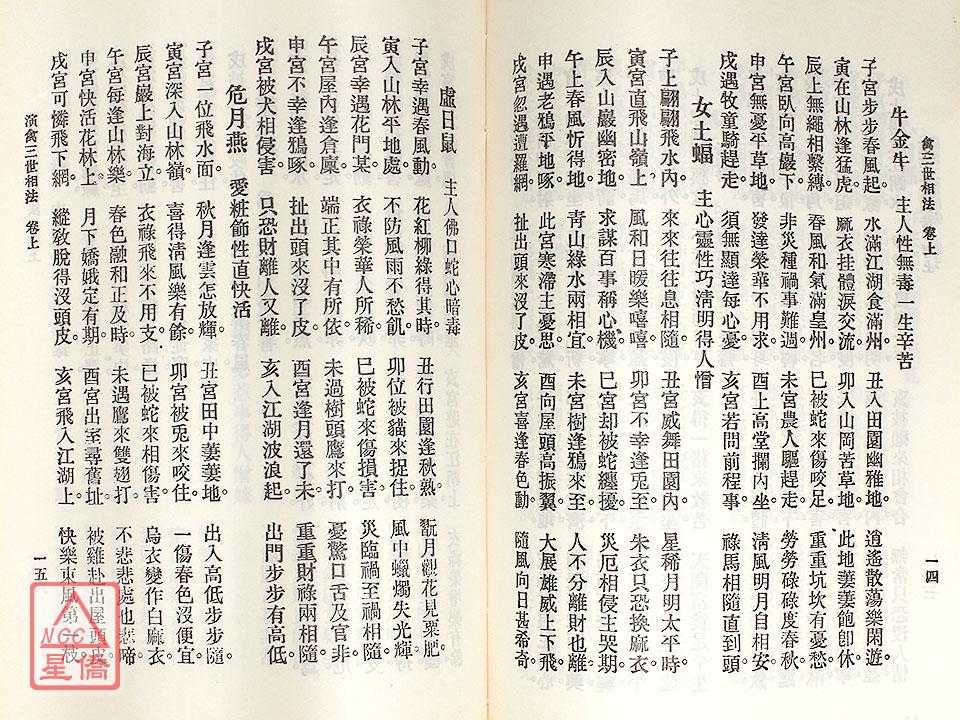 禽三世相法 卷上
牛金牛 主人性無毒一生辛苦
子宮步步春風起 水滿江湖食滿州 丑入田園幽雅地 逍遙散蕩樂閑遊
寅在山林逢猛虎 厰衣挂體淚交流 卯入山岡苦草地 此地萋萋飽卽休
辰上無繩相繫縛 春風和氣滿皇州 巳被蛇來傷咬足 重重坑坎有憂愁
午宮臥向高巖下 非災種禍事難週 未宮農人驅趕走 勞勞碌碌度春秋
申宮無憂平草地 發達榮華不用求 酉上高堂攔內坐 淸風明月自相安
戌遇牧童騎趕走 須無顯達每心憂 亥宮若問前程事 祿馬相隨直到頭
女土蝠 主心靈性巧淸明得人憎
子上翩翩飛水內 來來往往息相隨 丑宮威舞田園內 星稀月明太平時
寅宮直飛山嶺上 風和日暖樂嘻嘻 卯宮不幸逢兎至 朱衣只恐換麻衣
辰入山巖幽密地 求謀百事稱心機 巳宮却被蛇纏擾 災厄相侵主哭期
午上春風忻得地 靑山綠水兩相宜 未宮樹逢鴉來至 人不分離財也離
申遇老鴉平地啄 此宮寒滯主憂思 酉向屋頭高振翼 大展雄威上下飛
戌宮忽遇遭羅網 扯出頭來沒了皮 亥宮喜逢春色動 隨風向日甚希奇
一四
虛日鼠 主人佛口蛇心暗毒
子宮幸遇春風動 花紅柳綠得其時 丑行田園逢秋熟 翫月觀花見粟肥
寅入山林平地處 不防風雨不愁飢 卯位被貓來捉住 風中蠟燭失光輝
辰宮幸遇花門某 衣祿榮華人所稀 巳被蛇來傷損害 災臨禍至禍相隨
午宮屋內逢倉廩 端正其中有所依 未過樹頭鷹來打 憂驚口舌及官非
申宮不幸逢鴉啄 扯出頭來沒了皮 酉宮逢月還了未 重重財祿兩相隨
戌宮被犬相侵害 只恐財離人又離 亥入江湖波浪起 出門步步有高低
危月燕 愛粧飾性直快活
子宮一位飛水面 秋月逢雲怎放輝 丑宮田中萋萋地 出入高低步步隨
寅宮深入山林嶺 喜得淸風樂有餘 卯宮被兎來咬住 一傷春色沒便宜
辰宮巖上對海立 衣祿飛來不用支 巳被蛇來相傷害 烏衣變作白麻衣
午宮每逢山林樂 春色融和正及時 未遇鷹來雙翅打 不悲悲處也悲啼
申宮快活花林上 月下嬌娥定有期 酉宮出室尋舊址 被雞赴出屋頭
戌宮可憐飛下網 縱敎脫得沒頭皮 亥宮飛入江湖上 快樂東風第一枝
演禽三世相法 卷上
一五
NCC
星僑